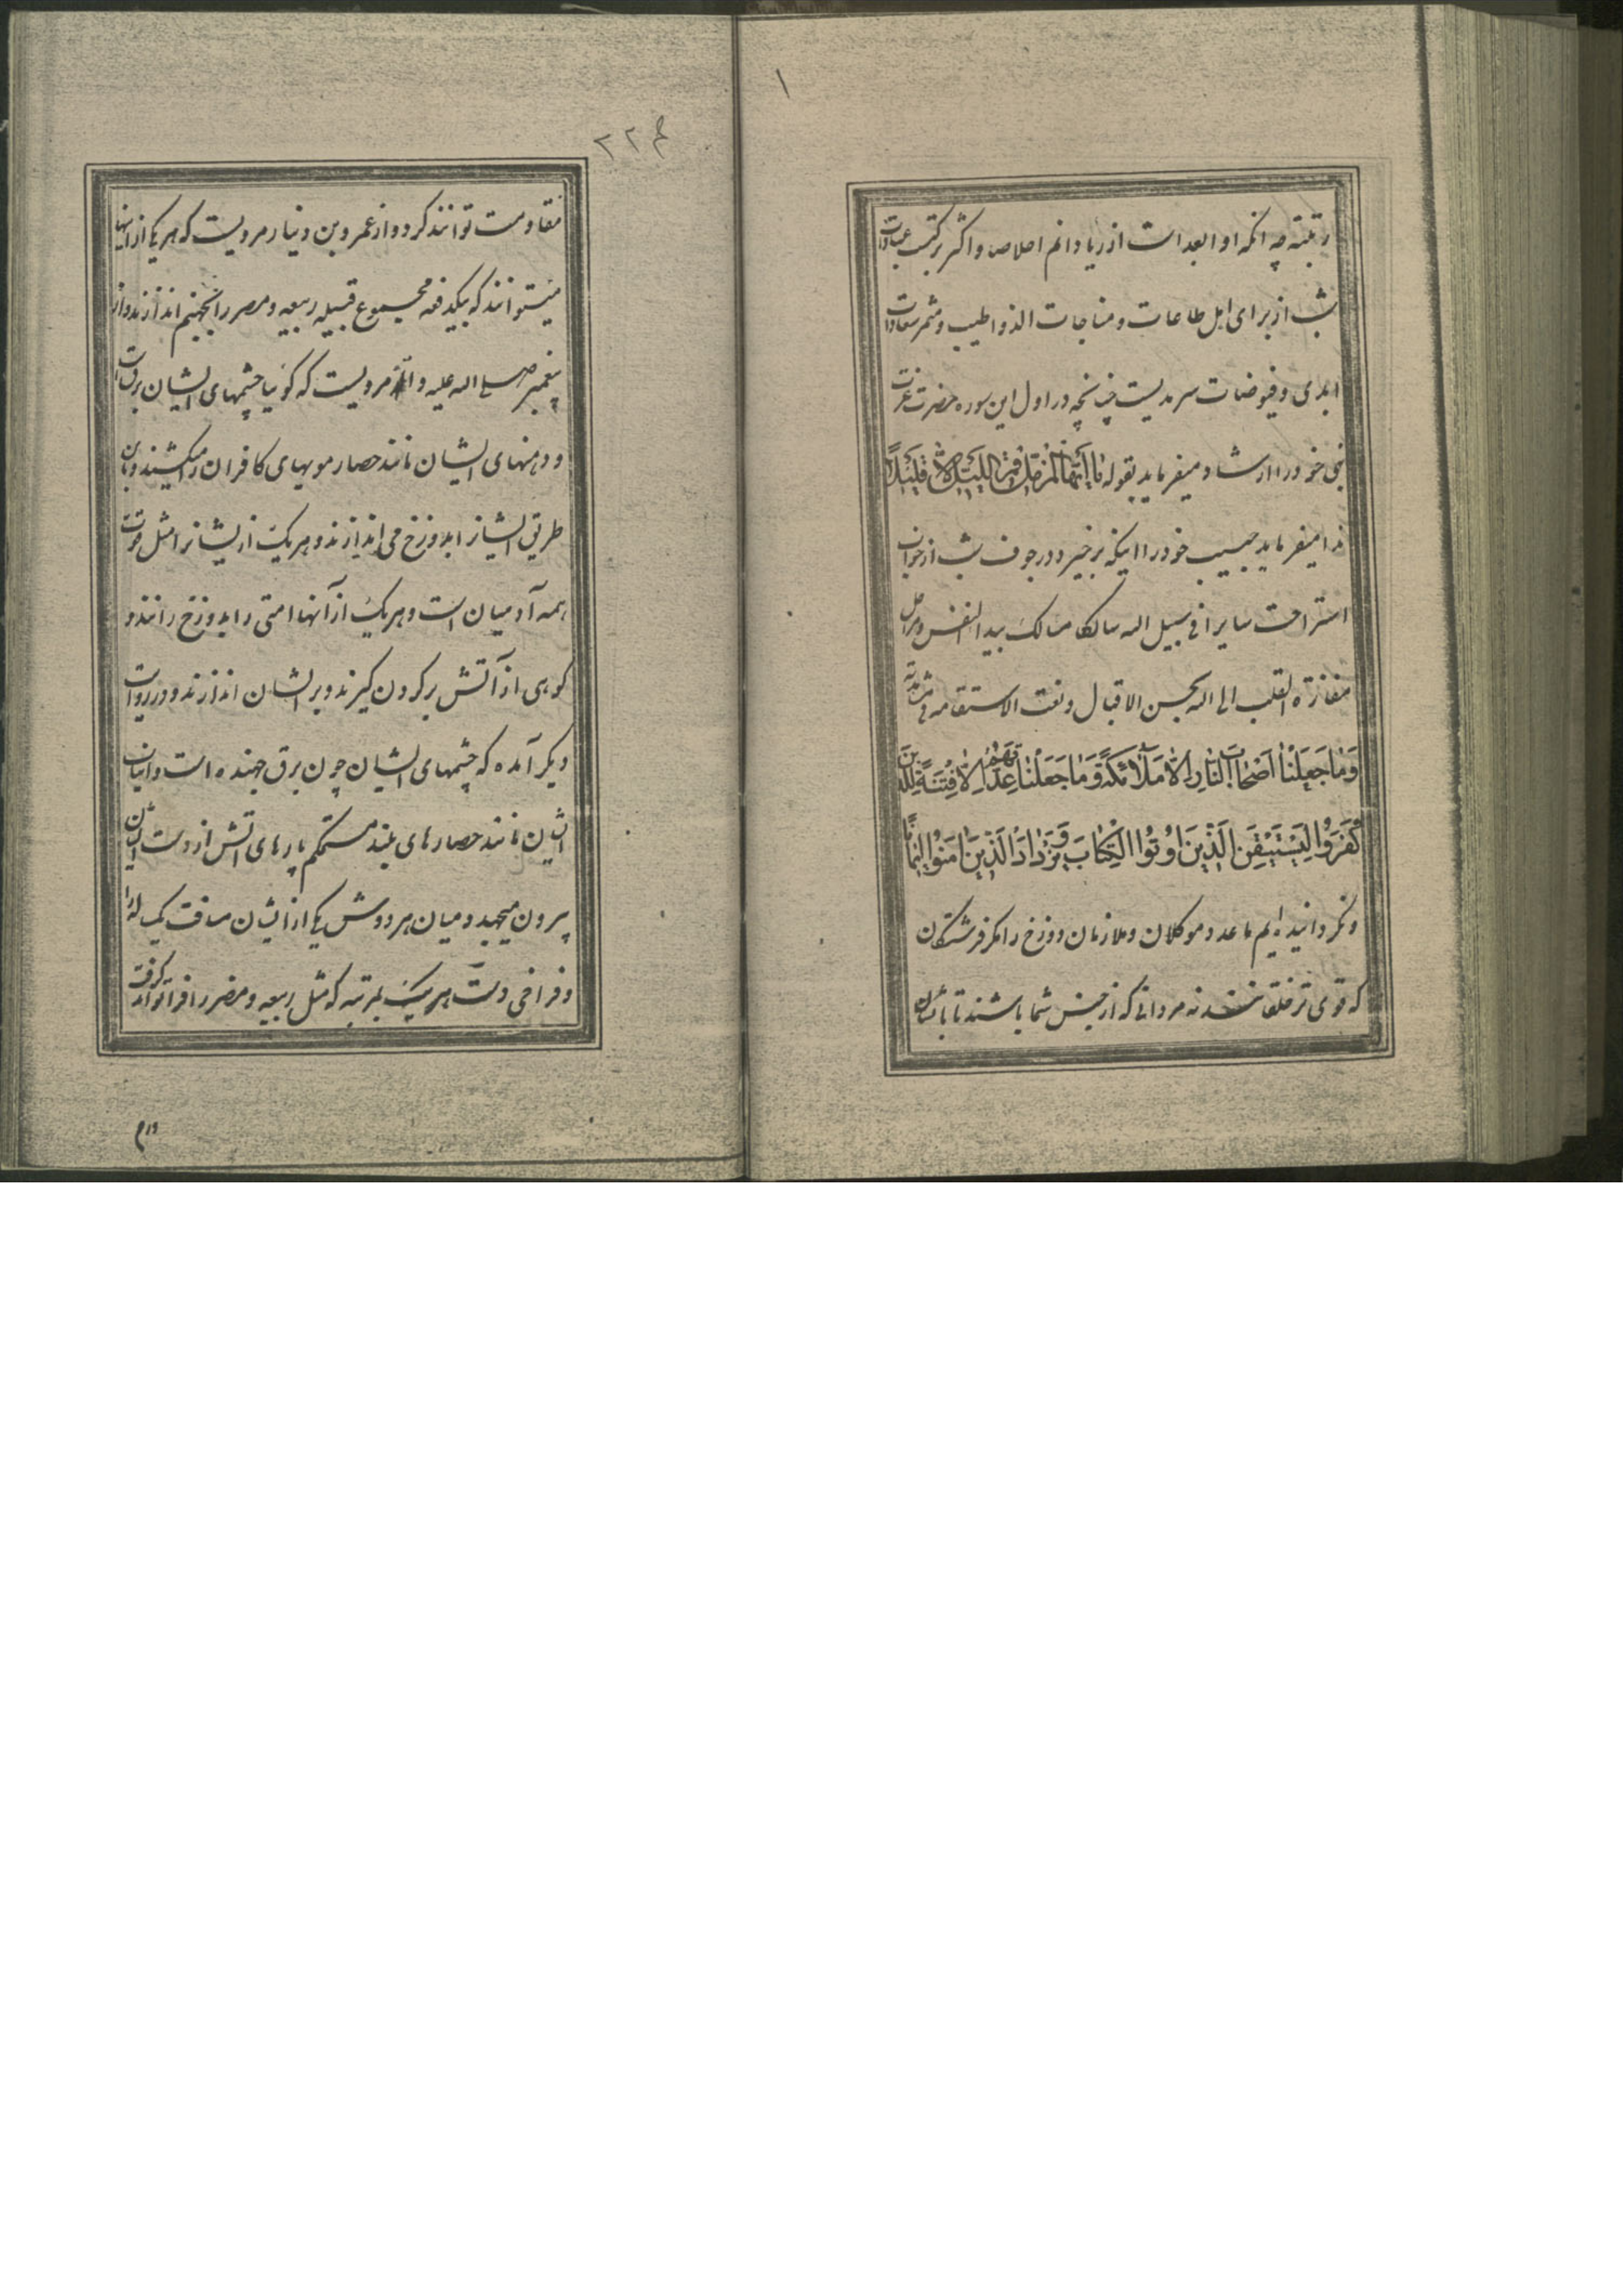 ۱
رتبته چه انکه او ابعد است از ریا و اتم اخلاص و اکثر برکتست عبادات
شب از برای اهل طاعات و مناجات الذ و اطیب و مثمر سعادات
ابدی و فیوضات سرمدیست چنانچه در اول این سوره حضرت عزت
نبی خود را ارشاد میفرماید بقوله یا أیها المزمل قم اللیل إلا قلیلا
ندا میفرماید حبیب خود را اینکه برخیز و در جوف شب از خواب
استراحت سایرا فی سبیل اله سالکا مسالک بیدا النفس و مراحل
مفازة القلب الی اله بحسن الاقبال و نعت الاستقامه فی
وَمَا جَعَلْنَا أَصْحَابَ النَّارِ إِلَّا مَلَائِكَةً وَمَا جَعَلْنَا عِدَّتَهُمْ إِلَّا فِتْنَةً لِلَّذِينَ
كَفَرُوا لِيَسْتَيْقِنَ الَّذِينَ أُوتُوا الْكِتَابَ وَيَزْدَادَ الَّذِينَ آمَنُوا إِيمَانًا
و نکردانیده ایم ما عدد موکلان و ملازمان دوزخ را مکر فرشتکان
که قوی تر خلقانند نه مردانی که از جنس شما باشند تا با ایشان
۲۲۴
مقاومت توانند کرد و از عمرو بن دینار مرویست که هر یکی از اینها
میتوانند که بیکدفعه مجموع قبیله ربیعه و مضر را بجهنم اندازند و از
پیغمبر صلی اله علیه و آله مرویست که کویا چشمهای ایشان برقست
و دهنهای ایشان مانند حصار مویهای کافران را میکشند و باین
طریق ایشانرا بدوزخ می اندازند و هر یک از ایشانرا مثل قوت
همه آدمیان است و هر یک از آنها امتی را بدوزخ رانند و
کوهی از آتش بر کردن کیرند و بر ایشان اندازند و در روایت
دیکر آمده که چشمهای ایشان چون برق جهنده است و انیاب
ایشان مانند حصارهای بلند مستحکم پارهای اتش از دهن ایشان
بیرون میجهد و میان هر دو دوش یکی از ایشان مسافت یکساله راه
و فراخی دست هر یک بمرتبه که مثل ربیعه و مضر را فرا تواند کرفت